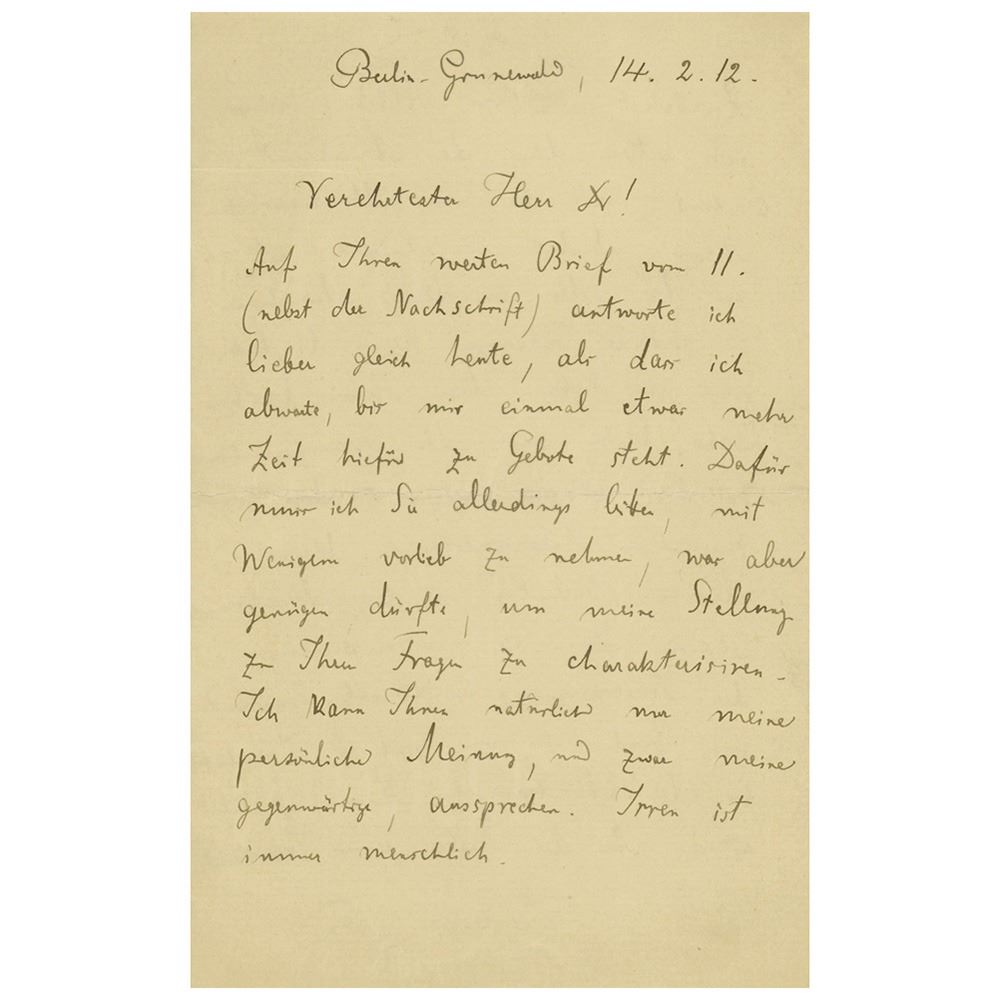 Berlin-Grunewald, 14. 2. 12.
Verehrtester Herr Dr!
Auf Ihren werten Brief vom 11.
(nebst der Nachschrift) antworte ich
lieber gleich heute, als dass ich
abwarte, bis mir einmal etwas mehr
Zeit hiefür zu Gebote steht. Dafür
muss ich Sie allerdings bitten, mit
Wenigem vorlieb zu nehmen, was aber
genügen dürfte, um meine Stellung
zu Ihren Fragen zu charakterisiren.
Ich kann Ihnen natürlich nur meine
persönliche Meinung, und zwar meine
gegenwärtige, aussprechen. Irren ist
immer menschlich.